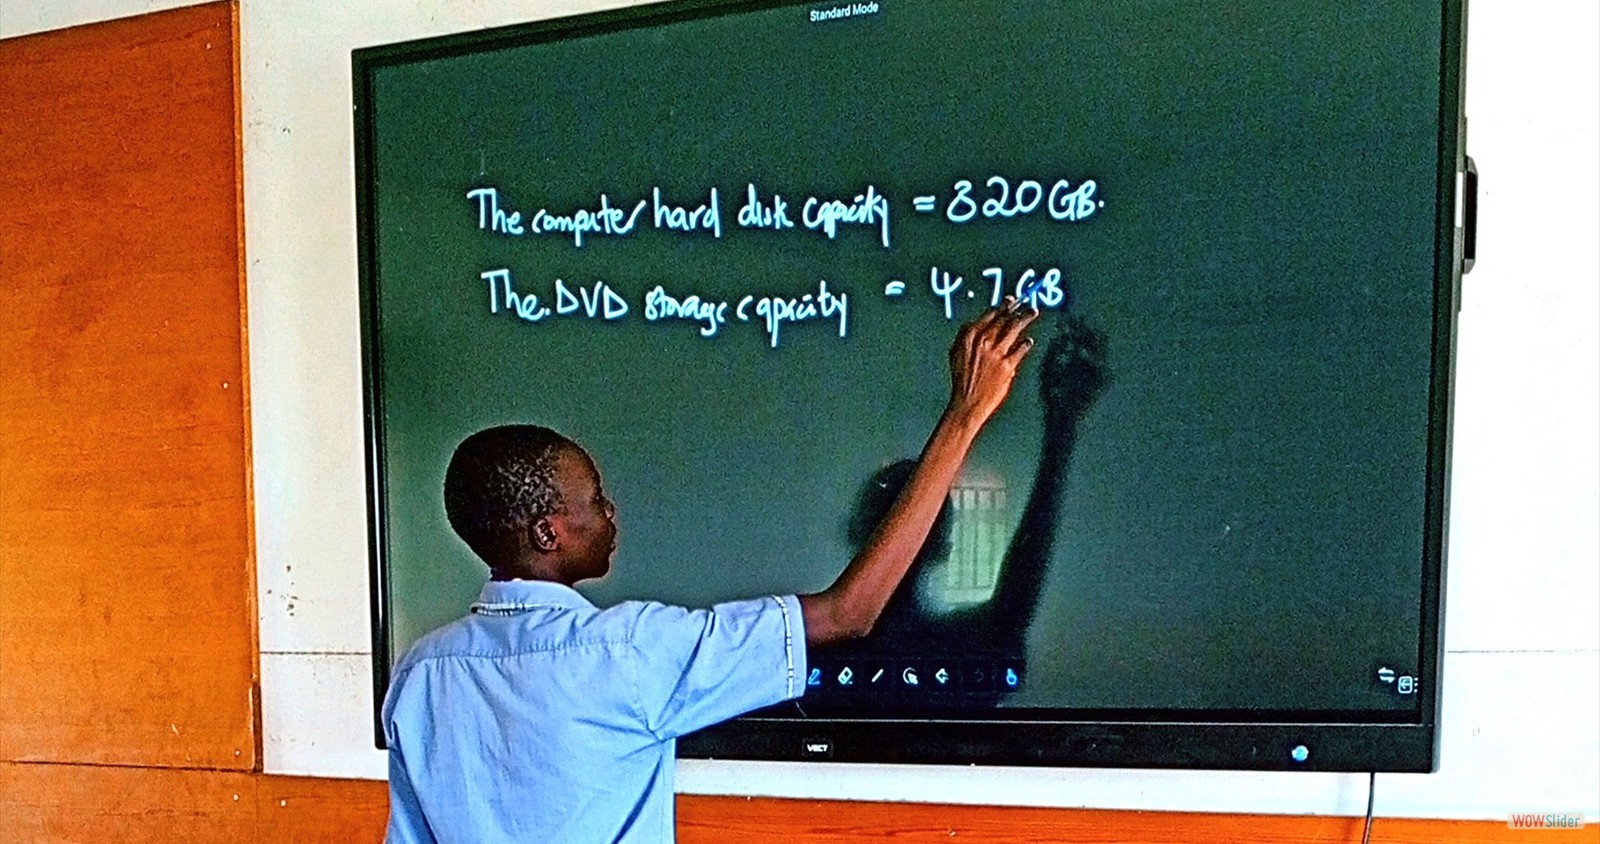 Standard Mode
The computer hard disk capacity = 320GB.
The. DVD storage capacity = 4.7GB
VECT
WOWSlider